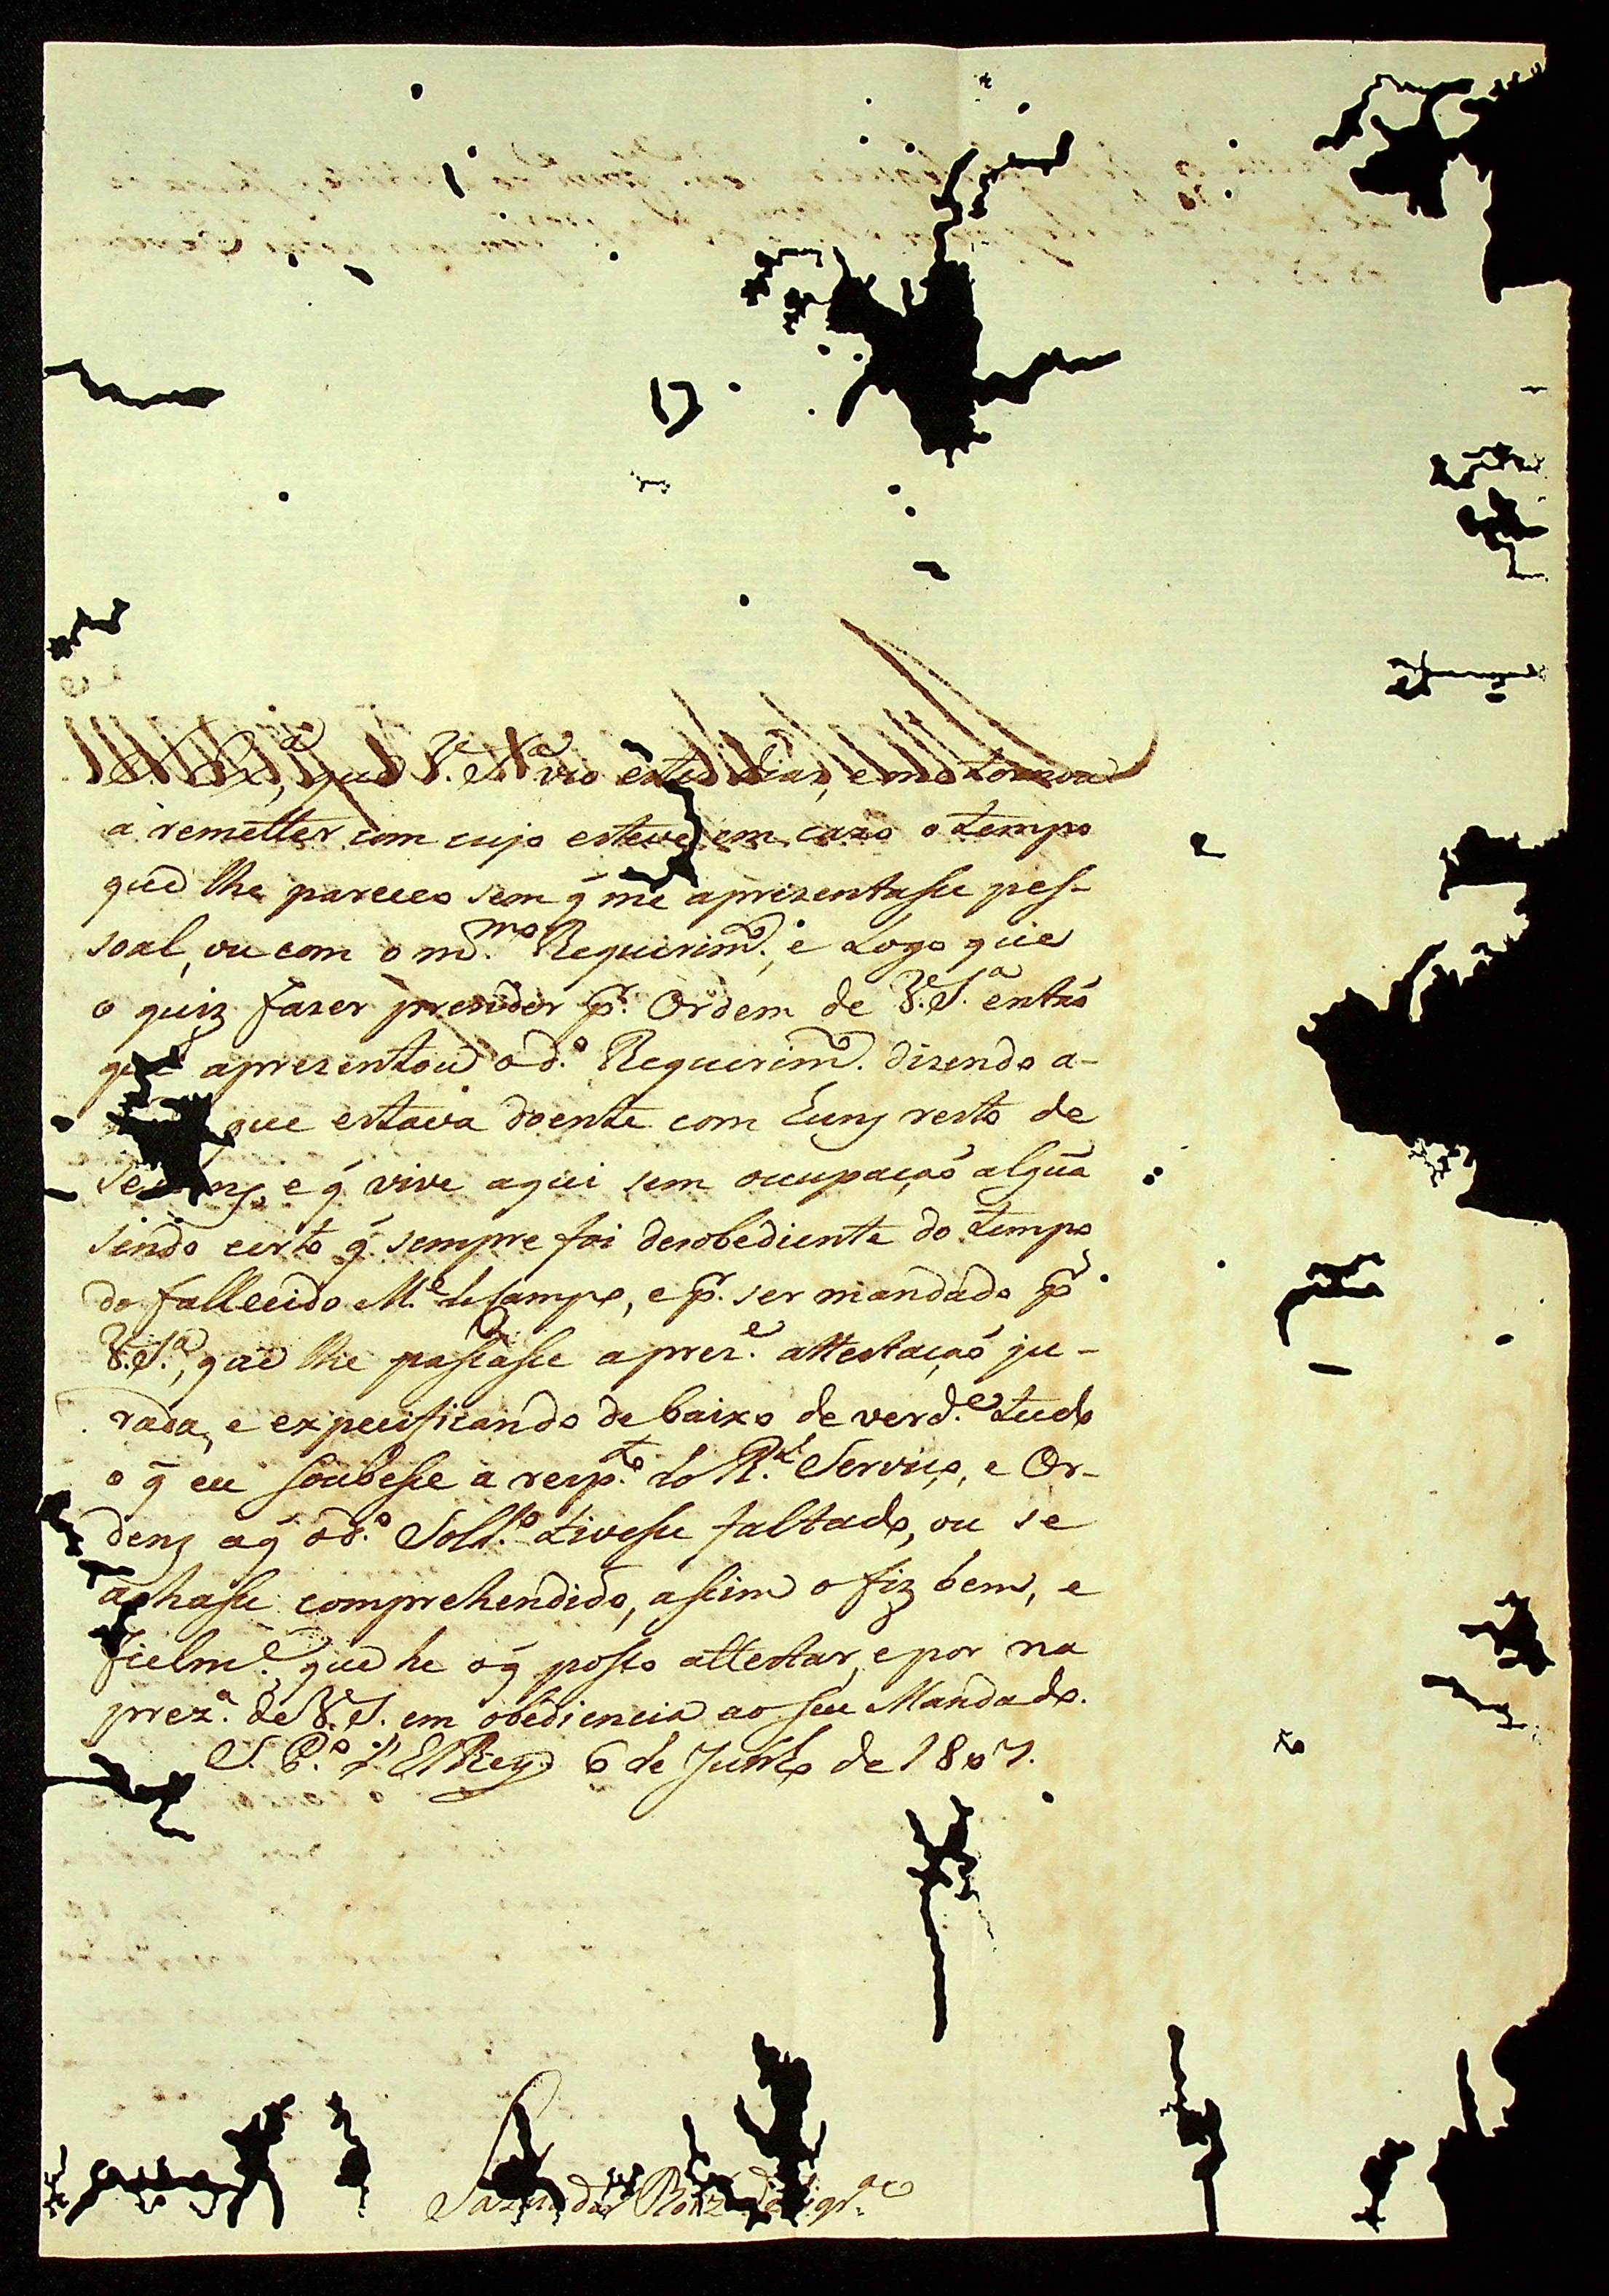 que V. S.ª vio estes dias, e me tornou
a remetter com cujo esteve em caza o tempo
que lhe pareceo sem q̃ me aprezentasse pes-
soal, ou com o m.mo Requerim.to, e Logo que
o quiz fazer prender p.r Ordem de V. S.ª entaõ
que aprezentou o d.º Requerim.to dizendo a-
que estava doente com huns resto de
e q̃ vive aqui sem occupaçaõ algũa
sendo certo q̃ sempre foi desobediente do tempo
do fallecido M.e de Campo, e p.r ser mandado p.r
V. S.ª, que lhe passasse a prez.e attestaçaõ ju-
rada, e expecificando debaixo de verd.e tudo
o q̃ eu soubesse a resp.to do R.l Serviço, e Or-
dens a q̃ o d.º Sold.º tivesse faltado, ou se
achasse comprehendido, assim o fiz bem, e
fielm.e que he o q̃ posso attestar, e por na
prez.ª de V. S. em obediencia ao seu Mandado.
S. P.º d'ElRey 6 de Junho de 1807.